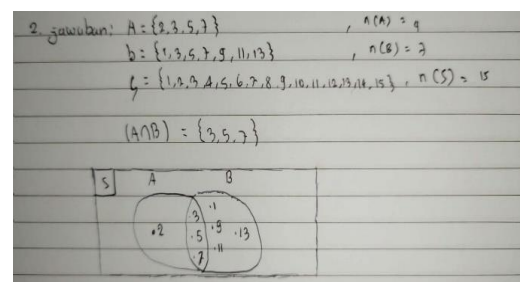 2. jawaban: A = {2,3,5,7} , n(A) = 4
b = {1,3,5,7,9,11,13} , n(B) = 7
S = {1,2,3,4,5,6,7,8,9,10,11,12,13,14,15}, n(S) = 15
(A∩B) = {3,5,7}
S A B
.1
3
.2 .5 .9 .13
.11
.7